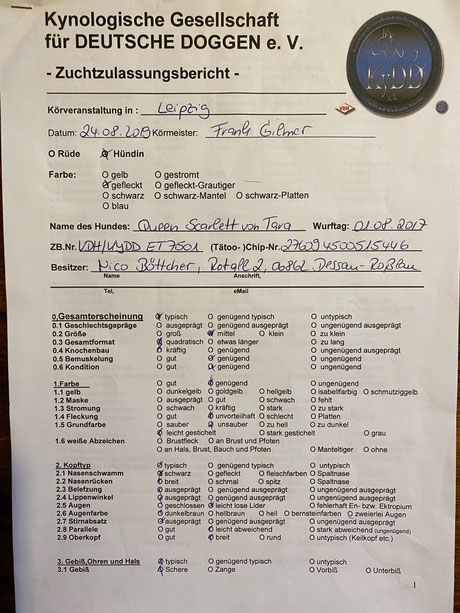 Kynologische Gesellschaft
für DEUTSCHE DOGGEN e. V.
- Zuchtzulassungsbericht -
KyDD
Körveranstaltung in : Leipzig
VDH
Datum: 24.08.2019 Körmeister: Frank Gilmer
O Rüde O Hündin
Farbe: O gelb O gestromt
O gefleckt O gefleckt-Grautiger
O schwarz O schwarz-Mantel O schwarz-Platten
O blau
Name des Hundes: Queen Scarlett von Tara Wurftag: 01.08.2017
ZB.Nr. VDH/KYDD ET 7501 (Tätoo- )Chip-Nr. 276094500515446
Besitzer: Nico Böttcher, Rotall 2, 06862 Dessau-Roßlau
Name Anschrift,
Tel, eMail
0.Gesamterscheinung O typisch O genügend typisch O untypisch
0.1 Geschlechtsgepräge O ausgeprägt O genügend ausgeprägt O ungenügend ausgeprägt
0.2 Größe O groß O mittel O klein O zu klein
0.3 Gesamtformat O quadratisch O etwas länger O zu lang
0.4 Knochenbau O kräftig O genügend O ungenügend
0.5 Bemuskelung O gut O genügend O ungenügend
0.6 Kondition O gut O genügend O ungenügend
1.Farbe O gut O genügend O ungenügend
1.1 gelb O dunkelgelb O goldgelb O hellgelb O isabellfarbig O schmutziggelb
1.2 Maske O ausgeprägt O gut O schwach O fehlt
1.3 Stromung O schwach O kräftig O stark O zu stark
1.4 Fleckung O gut O unvorteilhaft O schlecht O Platten
1.5 Grundfarbe O sauber O unsauber O zu hell O zu dunkel
O leicht gestichelt O stark gestichelt O grau
1.6 weiße Abzeichen O Brustfleck O an Brust und Pfoten
O an Hals, Brust, Bauch und Pfoten O Manteltiger O ohne
2. Kopftyp O typisch O genügend typisch O untypisch
2.1 Nasenschwamm O schwarz O gefleckt O fleischfarben O Spaltnase
2.2 Nasenrücken O breit O schmal O spitz O Spaltnase
2.3 Belefzung O ausgeprägt O genügend ausgeprägt O ungenügend ausgeprägt
2.4 Lippenwinkel O ausgeprägt O genügend ausgeprägt O ungenügend ausgeprägt
2.5 Augen O geschlossen O leicht lose Lider O fehlerhaft En- bzw. Ektropium
2.6 Augenfarbe O dunkelbraun O hellbraun O hell O bernsteinfarben O zweierlei Augen
2.7 Stirnabsatz O ausgeprägt O genügend ausgeprägt O ungenügend ausgeprägt
2.8 Parallele O gut O leicht abweichend O stark abweichend (ungenügend)
2.9 Oberkopf O gut O breit O rund O untypisch (Keilkopf etc.)
3. Gebiß,Ohren und Hals O typisch O genügend typisch O untypisch
3.1 Gebiß O Schere O Zange O Vorbiß O Unterbiß
1